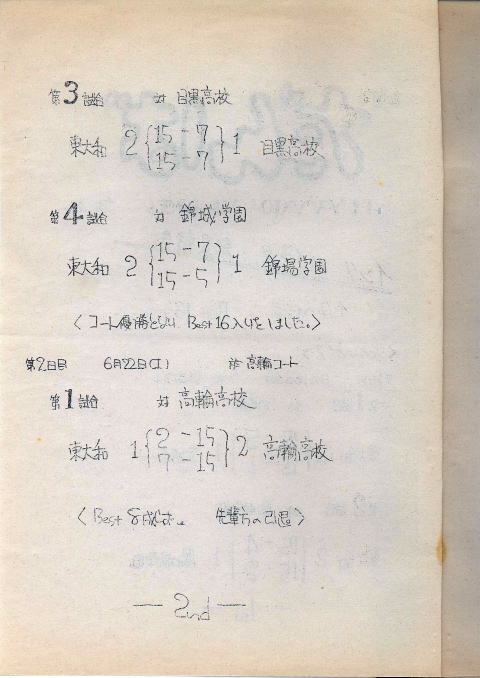 第3試合 対 目黒高校
東大和 2 {15-7 15-7} 1 目黒高校
第4試合 対 錦城学園
東大和 2 {15-7 15-5} 1 錦場学園
〈コート優勝となり、Best16入りをしました。〉
第2日目 6月22日(土) 於 高輪コート
第1試合 対 高輪高校
東大和 1 {2-15 7-15} 2 高輪高校
〈Best 8 成らず。 先輩方の引退〉
— 2nd —